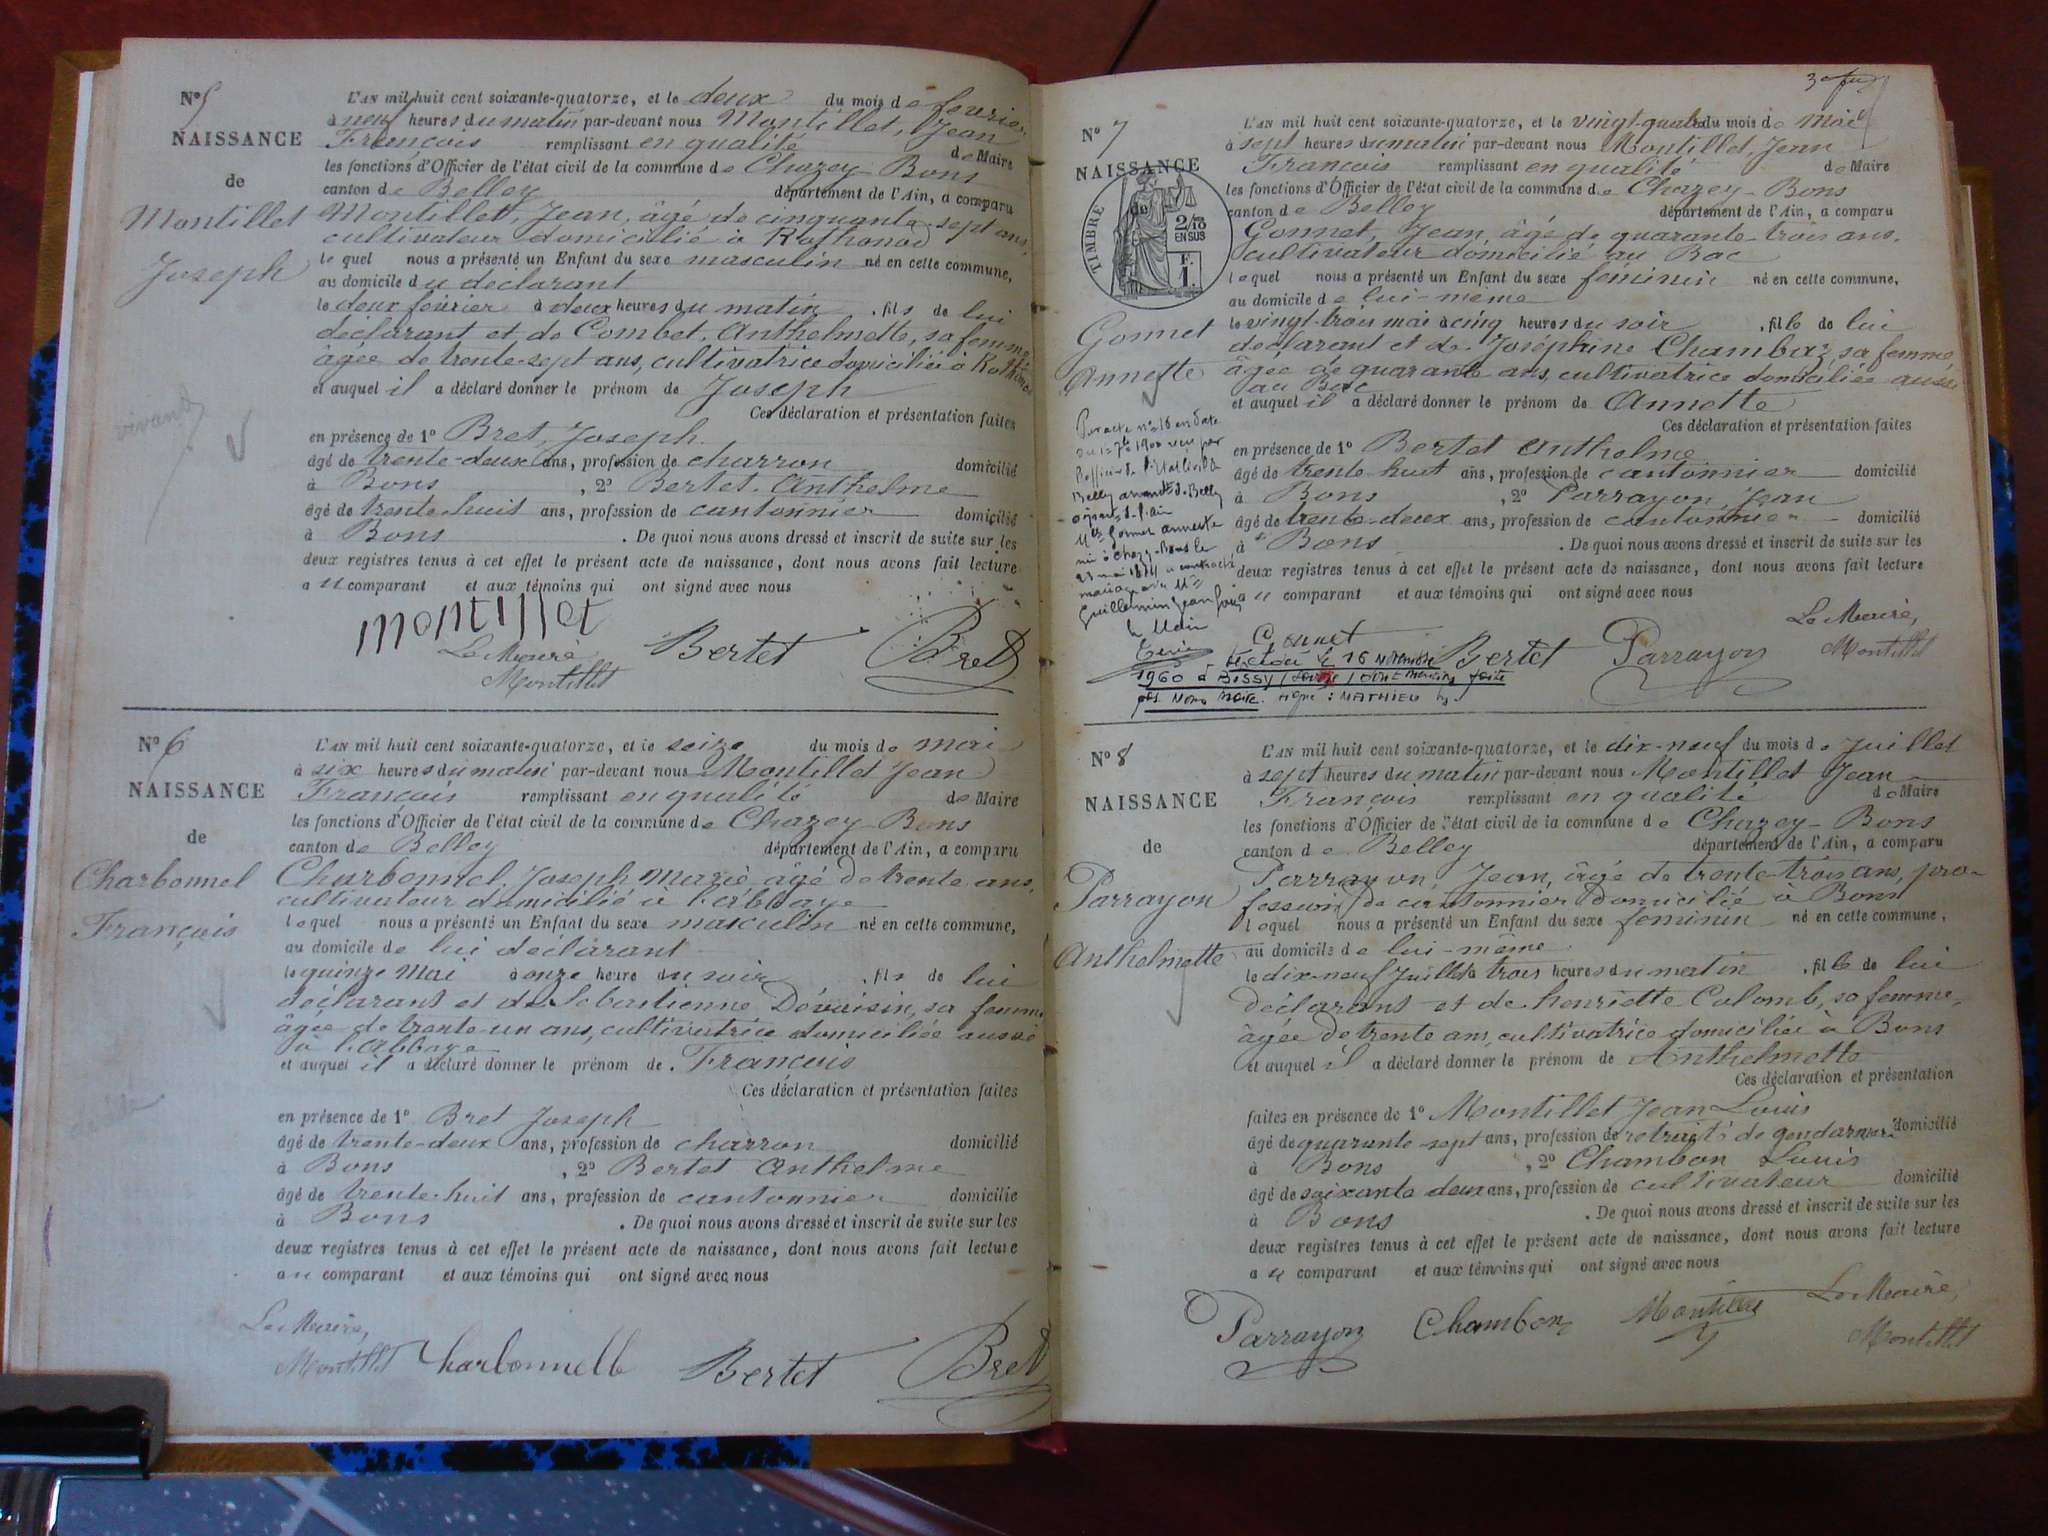 N° 5
NAISSANCE
de
Montillet
Joseph
L'AN mil huit cent soixante-quatorze, et le deux du mois de fevrier
à neuf heures du matin par-devant nous Montillet, Jean
François remplissant en qualité de Maire
les fonctions d'Officier de l'état civil de la commune de Chazey-Bons
canton de Belley département de l'Ain, a comparu
Montillet, Jean, âgé de cinquante-sept ans,
cultivateur domicilié à Rothonod
lequel nous a présenté un Enfant du sexe masculin né en cette commune,
au domicile du déclarant
le deux février à deux heures du matin, fils de lui
déclarant et de Combet, Anthelmette, sa femme
âgée de trente-sept ans, cultivatrice domiciliée à Rothonod
et auquel il a déclaré donner le prénom de Joseph
Ces déclaration et présentation faites
en présence de 1° Bret, Joseph
âgé de trente-deux ans, profession de charron domicilié
à Bons, 2° Bertet, Anthelme
âgé de trente huit ans, profession de cantonnier domicilié
à Bons. De quoi nous avons dressé et inscrit de suite sur les
deux registres tenus à cet effet le présent acte de naissance, dont nous avons fait lecture
au comparant et aux témoins qui ont signé avec nous
montillet
Le Maire Bertet Bret
Montillet
N° 6
NAISSANCE
de
Charbonnel
François
L'AN mil huit cent soixante-quatorze, et le seize du mois de mai
à six heures du matin par-devant nous Montillet Jean
François remplissant en qualité de Maire
les fonctions d'Officier de l'état civil de la commune de Chazey-Bons
canton de Belley département de l'Ain, a comparu
Charbonnel, Joseph Marie âgé de trente ans,
cultivateur domicilié à l'abbaye
lequel nous a présenté un Enfant du sexe masculin né en cette commune,
au domicile de lui déclarant
le quinze Mai à onze heure du soir, fils de lui
déclarant et de Sébastienne Dévoisin, sa femme
âgée de trente-un ans, cultivatrice domiciliée aussi
à l'abbaye
et auquel il a déclaré donner le prénom de François
Ces déclaration et présentation faites
en présence de 1° Bret Joseph
âgé de trente-deux ans, profession de charron domicilié
à Bons, 2° Bertet Anthelme
âgé de trente-huit ans, profession de cantonnier domicilié
à Bons. De quoi nous avons dressé et inscrit de suite sur les
deux registres tenus à cet effet le présent acte de naissance, dont nous avons fait lecture
au comparant et aux témoins qui ont signé avec nous
Le Maire,
Montillet Charbonnelle Bertet Bret
N° 7
NAISSANCE
de
TIMBRE
2/10
EN SUS
F.
1.
Gonnet
Annette
L'AN mil huit cent soixante-quatorze, et le vingt-quatre du mois de Mai
à sept heures du matin par-devant nous Montillet, Jean
François remplissant en qualité de Maire
les fonctions d'Officier de l'état civil de la commune de Chazey-Bons
canton de Belley département de l'Ain, a comparu
Gonnet, Jean, âgé de quarante-trois ans.
cultivateur domicilié au Bac
lequel nous a présenté un Enfant du sexe féminin né en cette commune,
au domicile de lui-même
le vingt-trois mai à cinq heures du soir, fille de lui
déclarant et de Joséphine Chambaz, sa femme
âgée de quarante ans, cultivatrice domiciliée aussi
au Bac
et auquel il a déclaré donner le prénom de Annette
Ces déclaration et présentation faites
en présence de 1° Bertet Anthelme
âgé de trente-huit ans, profession de cantonnier domicilié
à Bons, 2° Parrayon, Jean
âgé de trente-deux ans, profession de cantonnier domicilié
à Bons. De quoi nous avons dressé et inscrit de suite sur les
deux registres tenus à cet effet le présent acte de naissance, dont nous avons fait lecture
au comparant et aux témoins qui ont signé avec nous
Par acte n° 16 en date
du 1900 reçu par
l'officier de l'état civil de
Belley arrondt de Belley
départ. de l'ain
Melle Gonnet annette
née à Chazey-Bons le
23 mai 1874 a contracté
mariage avec Mr
Guillermin Jean
le Maire
Le Maire,
Gonnet Bertet Parrayon Montillet
Décédée le 16 novembre
1960 à BISSY (Savoie) dont mention faite
par nous maire. signé : MATHIEU
N° 8
NAISSANCE
de
Parrayon
Anthelmette
L'AN mil huit cent soixante-quatorze, et le dix-neuf du mois de Juillet
à sept heures du matin par-devant nous Montillet Jean
François remplissant en qualité de Maire
les fonctions d'Officier de l'état civil de la commune de Chazey-Bons
canton de Belley département de l'Ain, a comparu
Parrayon, Jean, âgé de trente-trois ans, pro-
fession de cantonnier domicilié à Bons
lequel nous a présenté un Enfant du sexe féminin né en cette commune,
au domicile de lui-même
le dix-neuf Juillet à trois heures du matin, fille de lui
déclarant et de henriette Colomb, sa femme,
âgée de trente ans, cultivatrice domiciliée à Bons
et auquel il a déclaré donner le prénom de Anthelmette
Ces déclaration et présentation
faites en présence de 1° Montillet Jean Louis
âgé de quarante-sept ans, profession de retraité de gendarmerie domicilié
à Bons, 2° Chambon Louis
âgé de soixante deux ans, profession de cultivateur domicilié
à Bons. De quoi nous avons dressé et inscrit de suite sur les
deux registres tenus à cet effet le présent acte de naissance, dont nous avons fait lecture
au comparant et aux témoins qui ont signé avec nous
Parrayon Chambon Montillet Le Maire,
Montillet